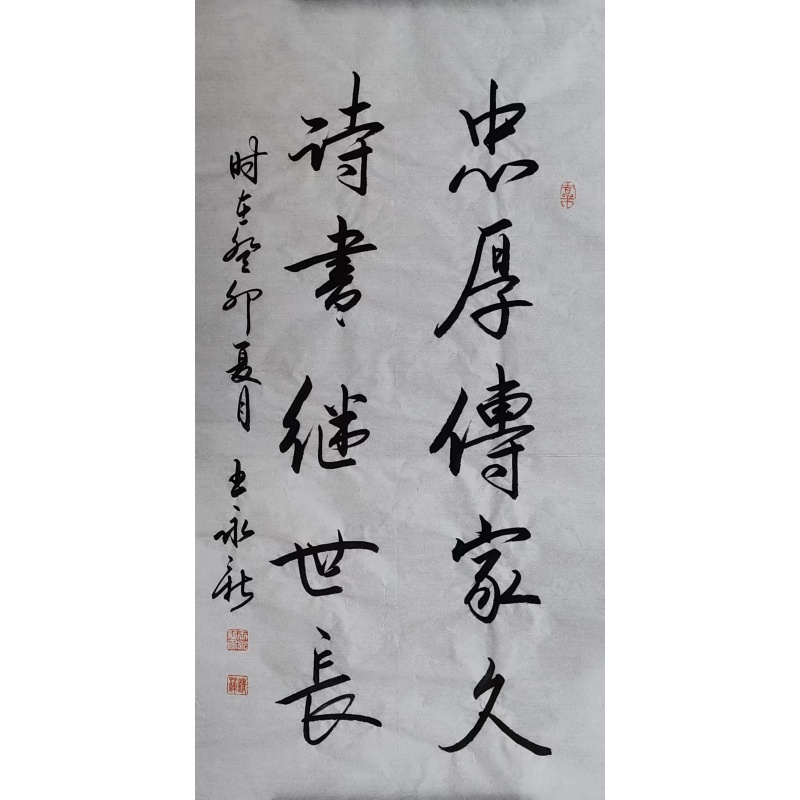 忠厚傳家久
诗書继世长
时在癸卯夏月 王永新